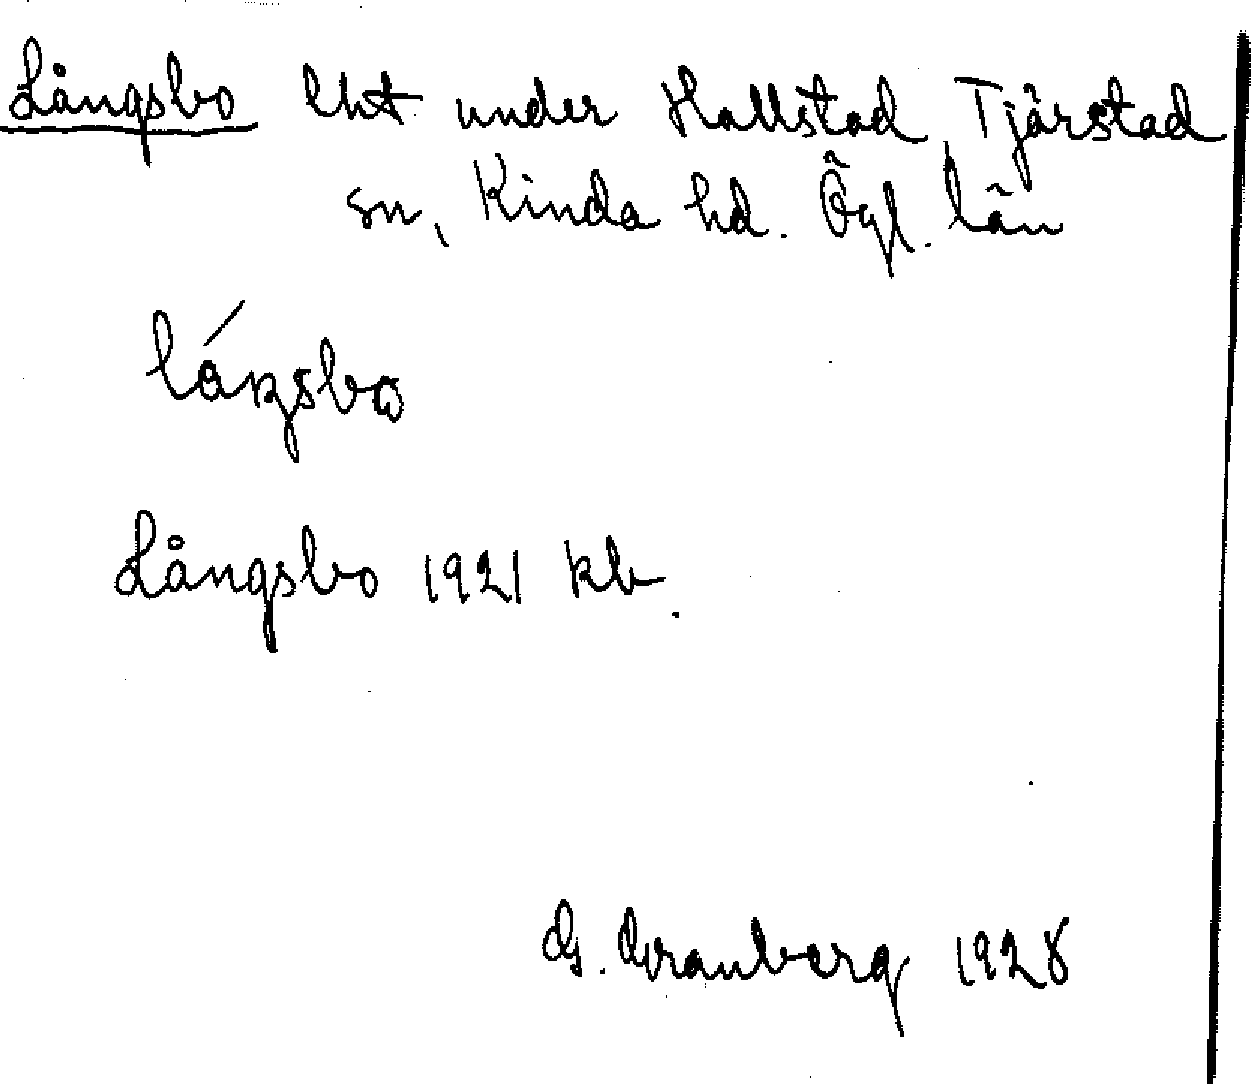 Långsbo lht under Hallstad Tjärstad
sn, Kinda hd. Ögl. län
lóŋsbo
Långsbo 1921 kb.
G. Granberg 1928